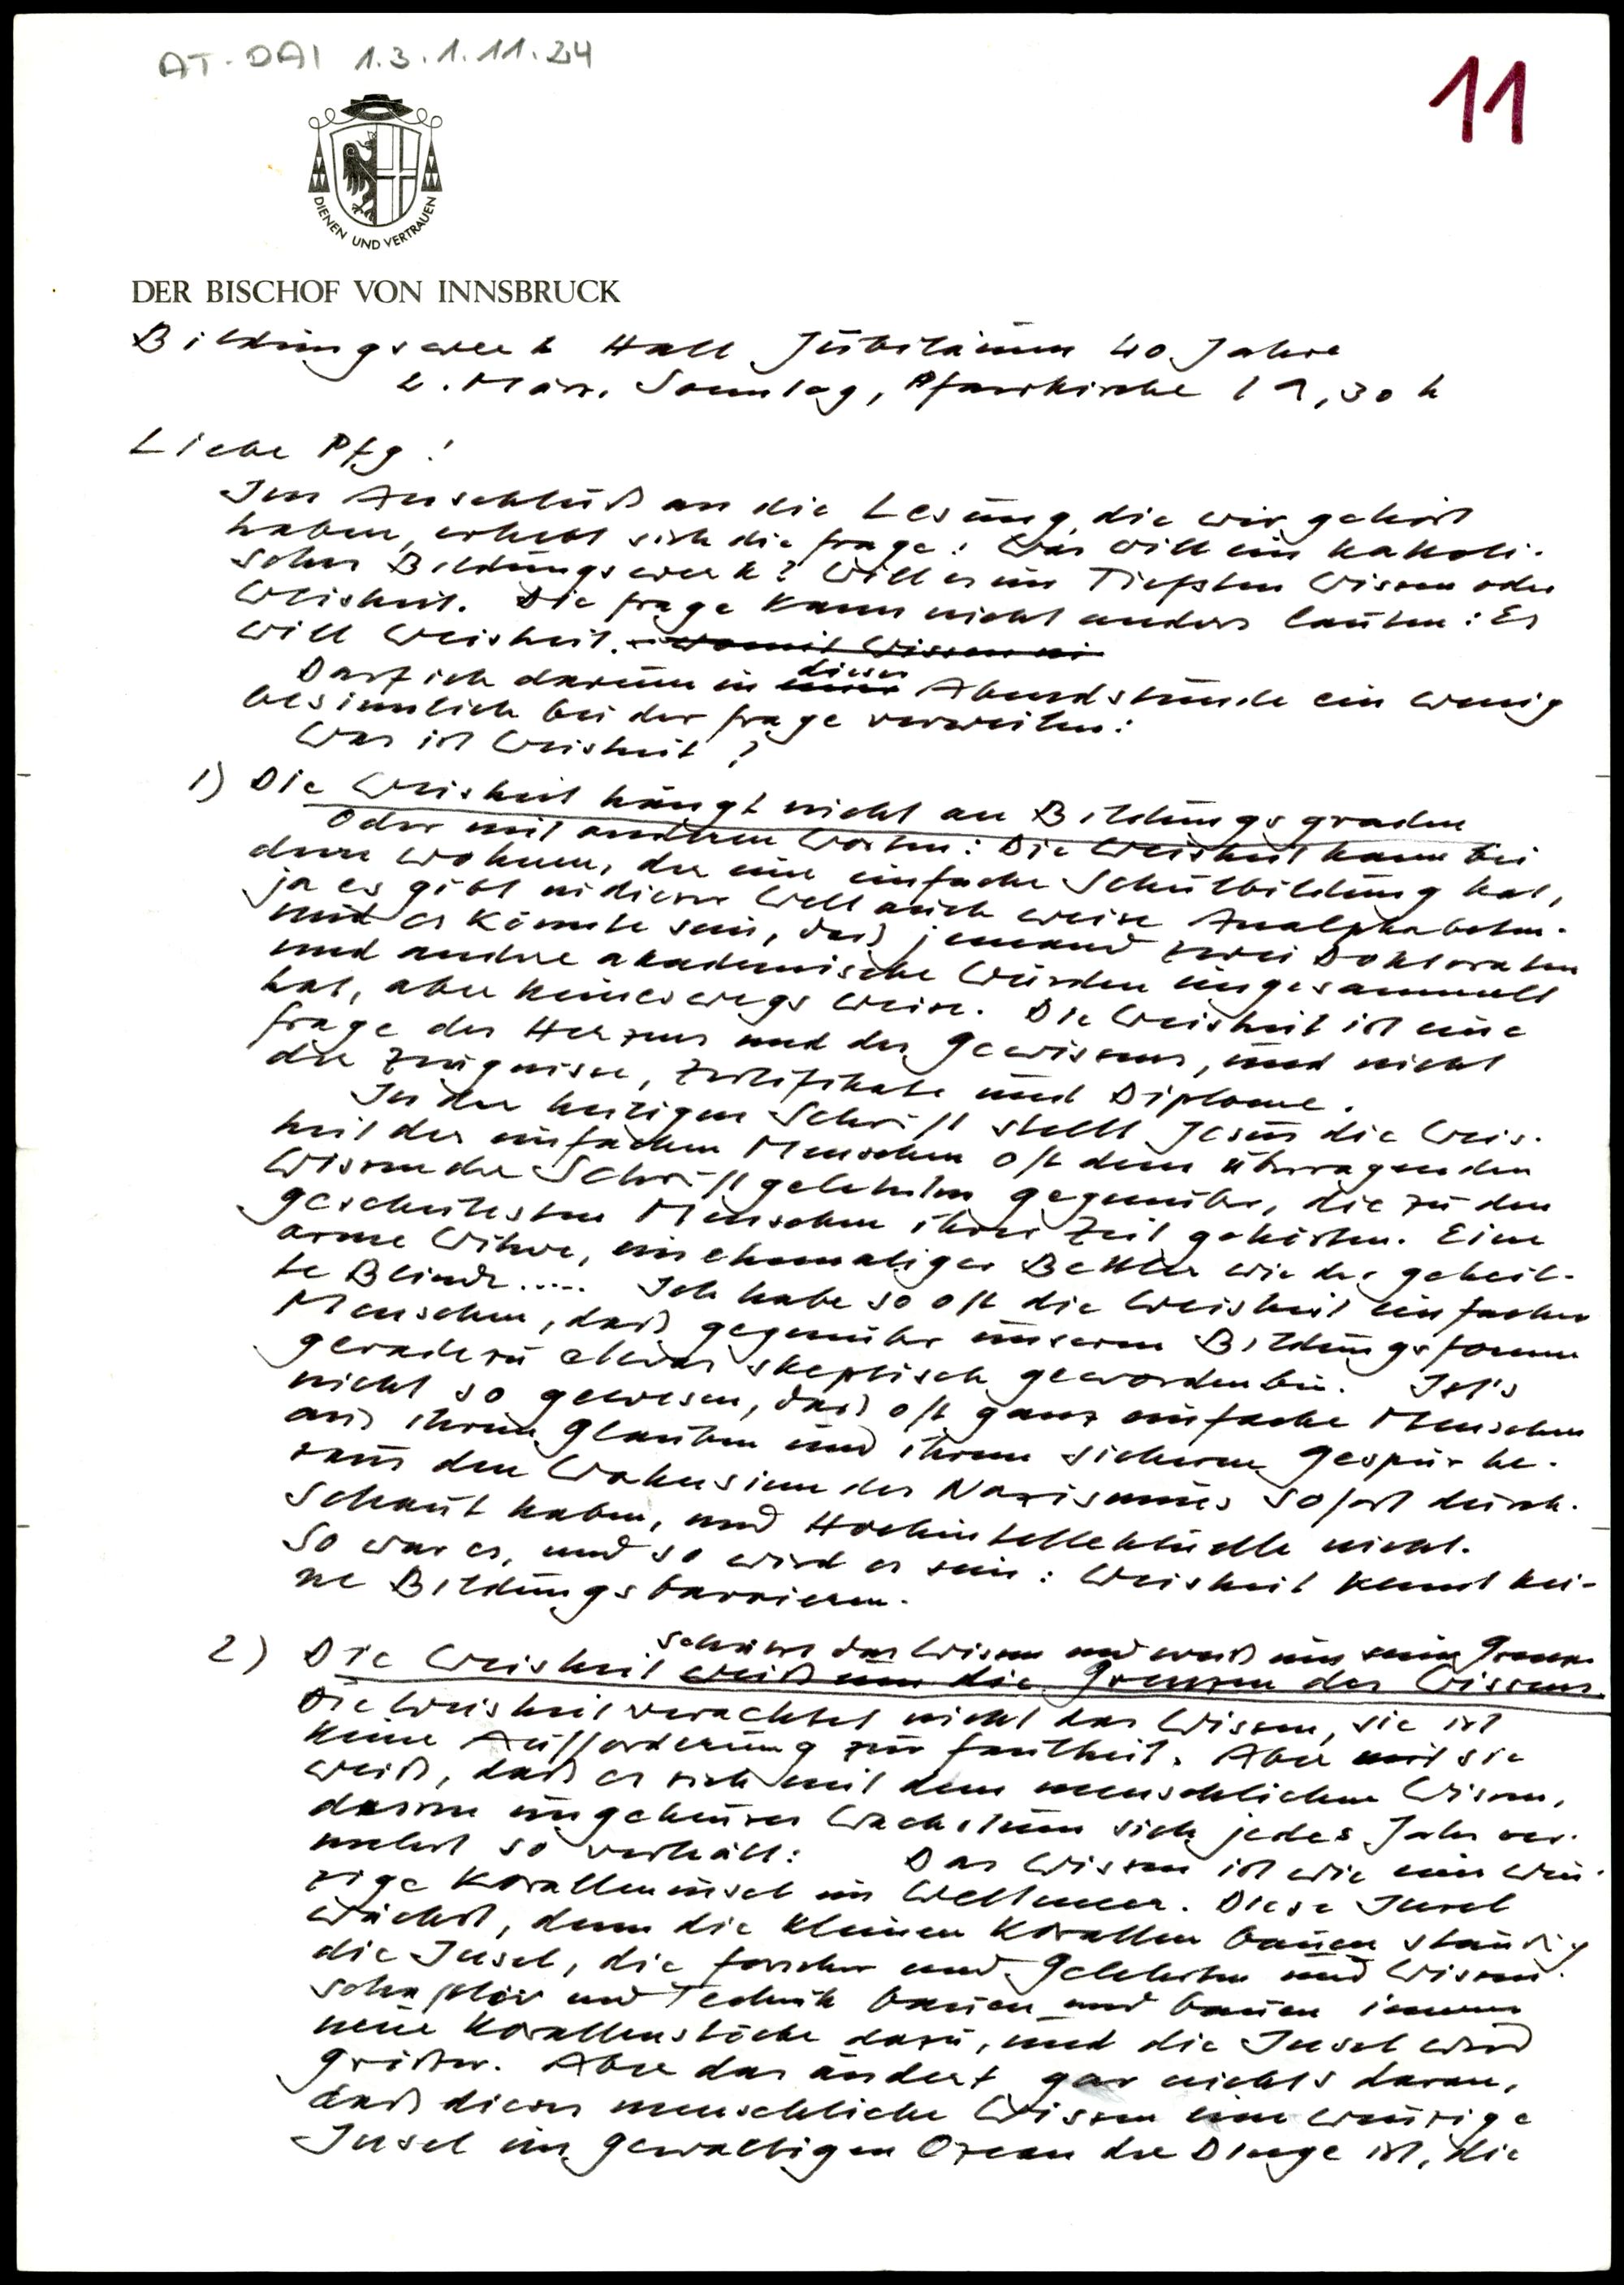 AT-DAI 1.3.1.11.24
11
DIENEN UND VERTRAUEN
DER BISCHOF VON INNSBRUCK
Bildungswerk Hall Jubiläum 40 Jahre
2. März, Sonntag, Pfarrkirche 19,30 h
Liebe Pfg!
Im Anschluß an die Lesung, die wir gehört
haben, erhebt sich die Frage: Was will ein katholi-
sches Bildungswerk? Will es im Tiefsten Wissen oder
Weisheit. Die Frage kann nicht anders lauten: Es
will Weisheit. womit Wissen ni
Darf ich darum in einer dieser Abendstunde ein wenig
besinnlich bei der Frage verweilen:
Was ist Weisheit?
1) Die Weisheit hängt nicht an Bildungsgraden
Oder mit anderen Worten: Die Weisheit kann bei
dem wohnen, der eine einfache Schulbildung hat,
ja es gibt in dieser Welt auch weise Analphabeten.
und es könnte sein, daß jemand zwei Doktorate
und andere akademische Würden eingesammelt
hat, aber keineswegs weise. Die Weisheit ist eine
Frage des Herzens und des Gewissens, und nicht
der Zeugnisse, Zertifikate und Diplome.
In der heiligen Schrift stellt Jesus die Weis-
heit des einfachen Menschen oft dem überragenden
Wissen der Schriftgelehrten gegenüber, die zu den
gescheitesten Menschen ihrer Zeit gehörten. Eine
arme Witwe, ein ehemaliger Bettler wie der geheil-
te Blinde..... Ich habe so oft die Weisheit einfacher
Menschen, daß gegenüber unseren Bildungsformen
geradezu etwas skeptisch geworden bin. Ist's
nicht so gewesen, daß oft ganz einfache Menschen
aus ihrem Glauben und ihrem sicheren Gespür he-
raus den Wahnsinn des Nazismus sofort durch-
schaut haben, und Hochintellektuelle nicht.
So war es, und so wird es sein: Weisheit kennt kei-
ne Bildungsbarrieren.
2) Die Weisheit schätzt das Wissen und weiß um seine Grenzen
weiß um die Grenzen des Wissens
Die Weisheit verachtet nicht das Wissen, sie ist
keine Aufforderung zur Faulheit. Aber sie
weiß, daß es sich mit dem menschlichen Wissen,
dessen ungeheures Wachstum sich jedes Jahr ver-
mehrt so verhält: Das Wissen ist wie eine win-
zige Koralleninsel im Weltmeer. Diese Insel
wächst, denn die kleinen Korallen bauen ständig
die Insel, die Forscher und Gelehrten und Wissen-
schaftler und Technik bauen und bauen immer
neue Korallenstöcke dazu, und die Insel wird
größer. Aber das ändert gar nichts daran,
daß dieses menschliche Wissen eine winzige
Insel im gewaltigen Ozean der Dinge ist, die